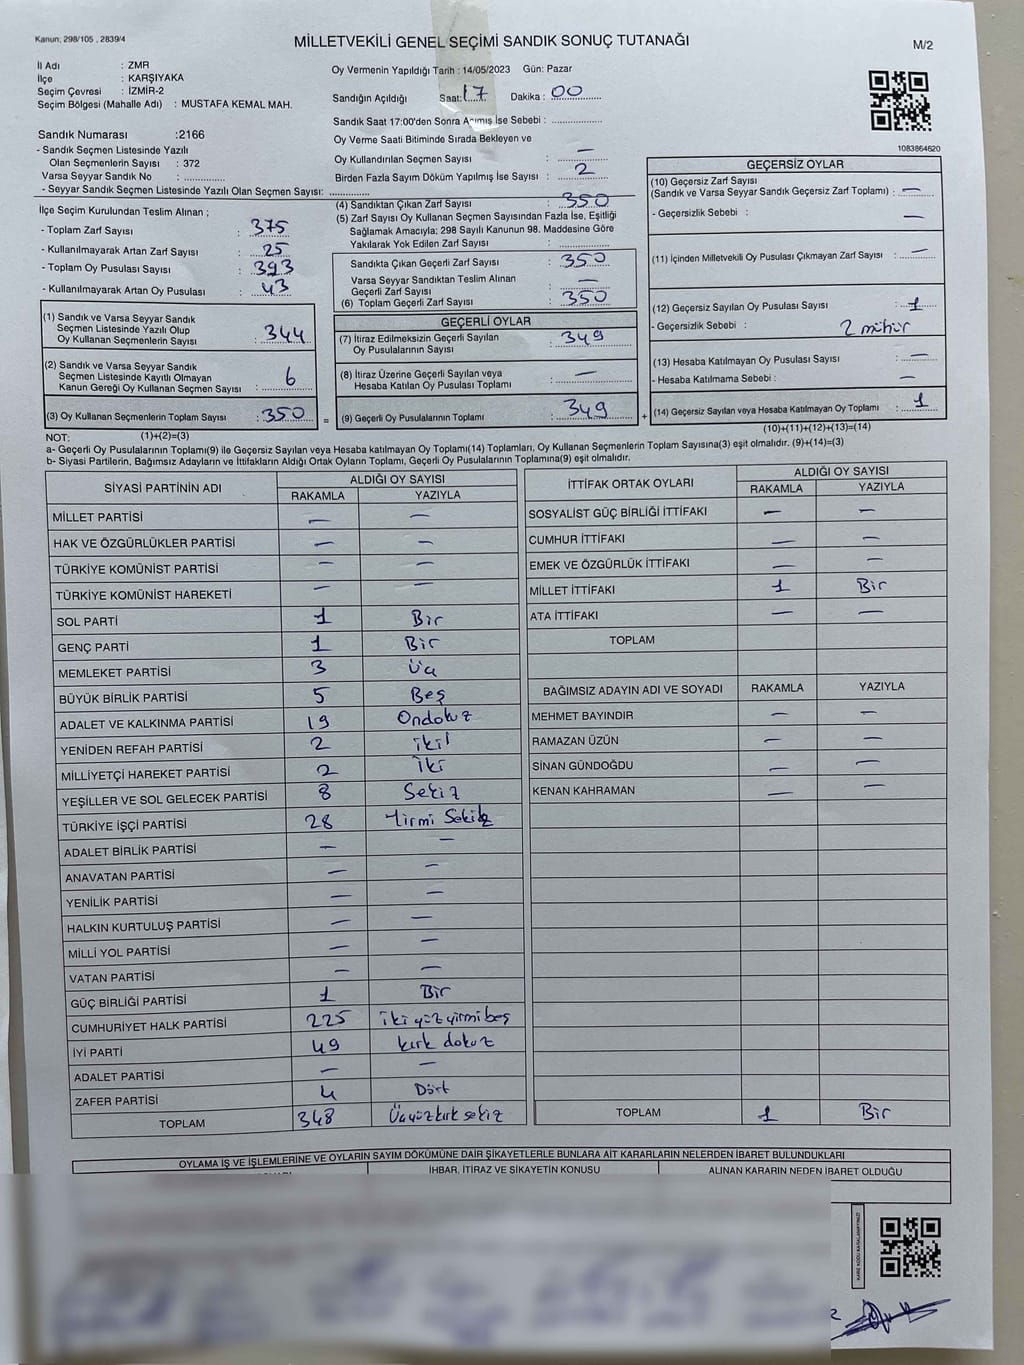 Kanun: 298/105 , 2839/4
MİLLETVEKİLİ GENEL SEÇİMİ SANDIK SONUÇ TUTANAĞI
M/2
İl Adı : ZMR
İlçe : KARŞIYAKA
Seçim Çevresi : İZMİR-2
Seçim Bölgesi (Mahalle Adı) : MUSTAFA KEMAL MAH.
Sandık Numarası :2166
- Sandık Seçmen Listesinde Yazılı
Olan Seçmenlerin Sayısı : 372
Varsa Seyyar Sandık No :
- Seyyar Sandık Seçmen Listesinde Yazılı Olan Seçmen Sayısı:
Oy Vermenin Yapıldığı Tarih : 14/05/2023 Gün: Pazar
Sandığın Açıldığı Saat: 17 Dakika : 00
Sandık Saat 17:00'den Sonra Açmış İse Sebebi :
Oy Verme Saati Bitiminde Sırada Bekleyen ve
Oy Kullandırılan Seçmen Sayısı : —
Birden Fazla Sayım Döküm Yapılmış İse Sayısı : 2
1083864620
İlçe Seçim Kurulundan Teslim Alınan ;
- Toplam Zarf Sayısı : 375
- Kullanılmayarak Artan Zarf Sayısı : 25
- Toplam Oy Pusulası Sayısı : 393
- Kullanılmayarak Artan Oy Pusulası : 43
(1) Sandık ve Varsa Seyyar Sandık
Seçmen Listesinde Yazılı Olup
Oy Kullanan Seçmenlerin Sayısı : 344
(2) Sandık ve Varsa Seyyar Sandık
Seçmen Listesinde Kayıtlı Olmayan
Kanun Gereği Oy Kullanan Seçmen Sayısı : 6
(3) Oy Kullanan Seçmenlerin Toplam Sayısı : 350 =
(4) Sandıktan Çıkan Zarf Sayısı : 350
(5) Zarf Sayısı Oy Kullanan Seçmen Sayısından Fazla İse, Eşitliği
Sağlamak Amacıyla; 298 Sayılı Kanunun 98. Maddesine Göre
Yakılarak Yok Edilen Zarf Sayısı :
Sandıkta Çıkan Geçerli Zarf Sayısı : 350
Varsa Seyyar Sandıktan Teslim Alınan
Geçerli Zarf Sayısı : —
(6) Toplam Geçerli Zarf Sayısı : 350
GEÇERLİ OYLAR
(7) İtiraz Edilmeksizin Geçerli Sayılan
Oy Pusulalarının Sayısı : 349
(8) İtiraz Üzerine Geçerli Sayılan veya
Hesaba Katılan Oy Pusulası Toplamı : —
(9) Geçerli Oy Pusulalarının Toplamı : 349 +
GEÇERSİZ OYLAR
(10) Geçersiz Zarf Sayısı
(Sandık ve Varsa Seyyar Sandık Geçersiz Zarf Toplamı) : —
- Geçersizlik Sebebi : —
(11) İçinden Milletvekili Oy Pusulası Çıkmayan Zarf Sayısı : —
(12) Geçersiz Sayılan Oy Pusulası Sayısı : 1
- Geçersizlik Sebebi : 2 mühür
(13) Hesaba Katılmayan Oy Pusulası Sayısı : —
- Hesaba Katılmama Sebebi : —
(14) Geçersiz Sayılan veya Hesaba Katılmayan Oy Toplamı : 1
NOT: (1)+(2)=(3) (10)+(11)+(12)+(13)=(14)
a- Geçerli Oy Pusulalarının Toplamı(9) ile Geçersiz Sayılan veya Hesaba katılmayan Oy Toplamı(14) Toplamları, Oy Kullanan Seçmenlerin Toplam Sayısına(3) eşit olmalıdır. (9)+(14)=(3)
b- Siyasi Partilerin, Bağımsız Adayların ve İttifakların Aldığı Ortak Oyların Toplamı, Geçerli Oy Pusulalarının Toplamına(9) eşit olmalıdır.
SİYASİ PARTİNİN ADI ALDIĞI OY SAYISI
RAKAMLA YAZIYLA
MİLLET PARTİSİ — —
HAK VE ÖZGÜRLÜKLER PARTİSİ — —
TÜRKİYE KOMÜNİST PARTİSİ — —
TÜRKİYE KOMÜNİST HAREKETİ — —
SOL PARTİ 1 Bir
GENÇ PARTİ 1 Bir
MEMLEKET PARTİSİ 3 Üç
BÜYÜK BİRLİK PARTİSİ 5 Beş
ADALET VE KALKINMA PARTİSİ 19 Ondokuz
YENİDEN REFAH PARTİSİ 2 iki
MİLLİYETÇİ HAREKET PARTİSİ 2 iki
YEŞİLLER VE SOL GELECEK PARTİSİ 8 Sekiz
TÜRKİYE İŞÇİ PARTİSİ 28 Yirmi Sekiz
ADALET BİRLİK PARTİSİ — —
ANAVATAN PARTİSİ — —
YENİLİK PARTİSİ — —
HALKIN KURTULUŞ PARTİSİ — —
MİLLİ YOL PARTİSİ — —
VATAN PARTİSİ — —
GÜÇ BİRLİĞİ PARTİSİ 1 Bir
CUMHURİYET HALK PARTİSİ 225 iki yüz yirmi beş
İYİ PARTİ 49 kırk dokuz
ADALET PARTİSİ — —
ZAFER PARTİSİ 4 Dört
TOPLAM 348 Üçyüzkırk sekiz
İTTİFAK ORTAK OYLARI ALDIĞI OY SAYISI
RAKAMLA YAZIYLA
SOSYALİST GÜÇ BİRLİĞİ İTTİFAKI — —
CUMHUR İTTİFAKI — —
EMEK VE ÖZGÜRLÜK İTTİFAKI — —
MİLLET İTTİFAKI 1 Bir
ATA İTTİFAKI — —
TOPLAM
BAĞIMSIZ ADAYIN ADI VE SOYADI RAKAMLA YAZIYLA
MEHMET BAYINDIR — —
RAMAZAN ÜZÜN — —
SİNAN GÜNDOĞDU — —
KENAN KAHRAMAN — —
TOPLAM 1 Bir
OYLAMA İŞ VE İŞLEMLERİNE VE OYLARIN SAYIM DÖKÜMÜNE DAİR ŞİKAYETLERLE BUNLARA AİT KARARLARIN NELERDEN İBARET BULUNDUKLARI
İHBAR, İTİRAZ VE ŞİKAYETİN KONUSU ALINAN KARARIN NEDEN İBARET OLDUĞU